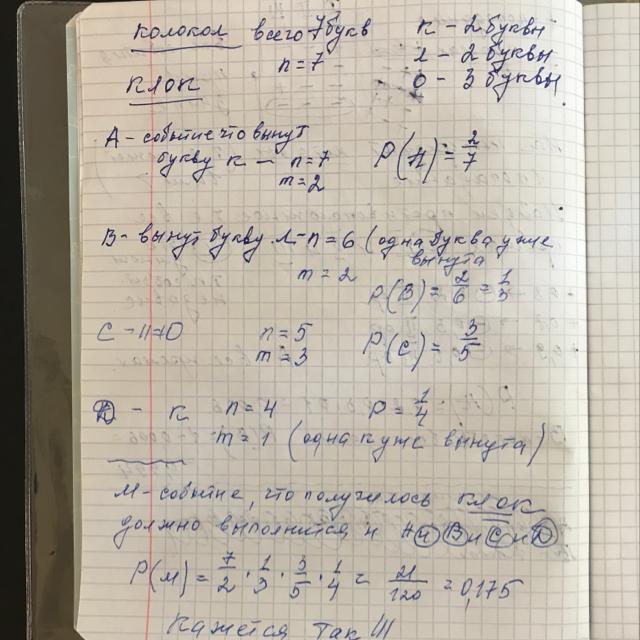 колокол всего 7 букв к - 2 буквы
n = 7 л - 2 буквы
клок о - 3 буквы
А - событие что вынут
букву к - n = 7 P(A) = 2/7
m = 2
В - вынут букву л - n = 6 (одна буква уже
вынута
m = 2
P(B) = 2/6 = 1/3
С - n = 5 P(C) = 3/5
m = 3
D - к n = 4 P = 1/4
m = 1 (одна к уже вынута)
М - событие, что получилось клок
должно выполнится и А и В и С и D
P(M) = 7/2 · 1/3 · 3/5 · 1/4 = 21/120 = 0,175
Кажется так!!!